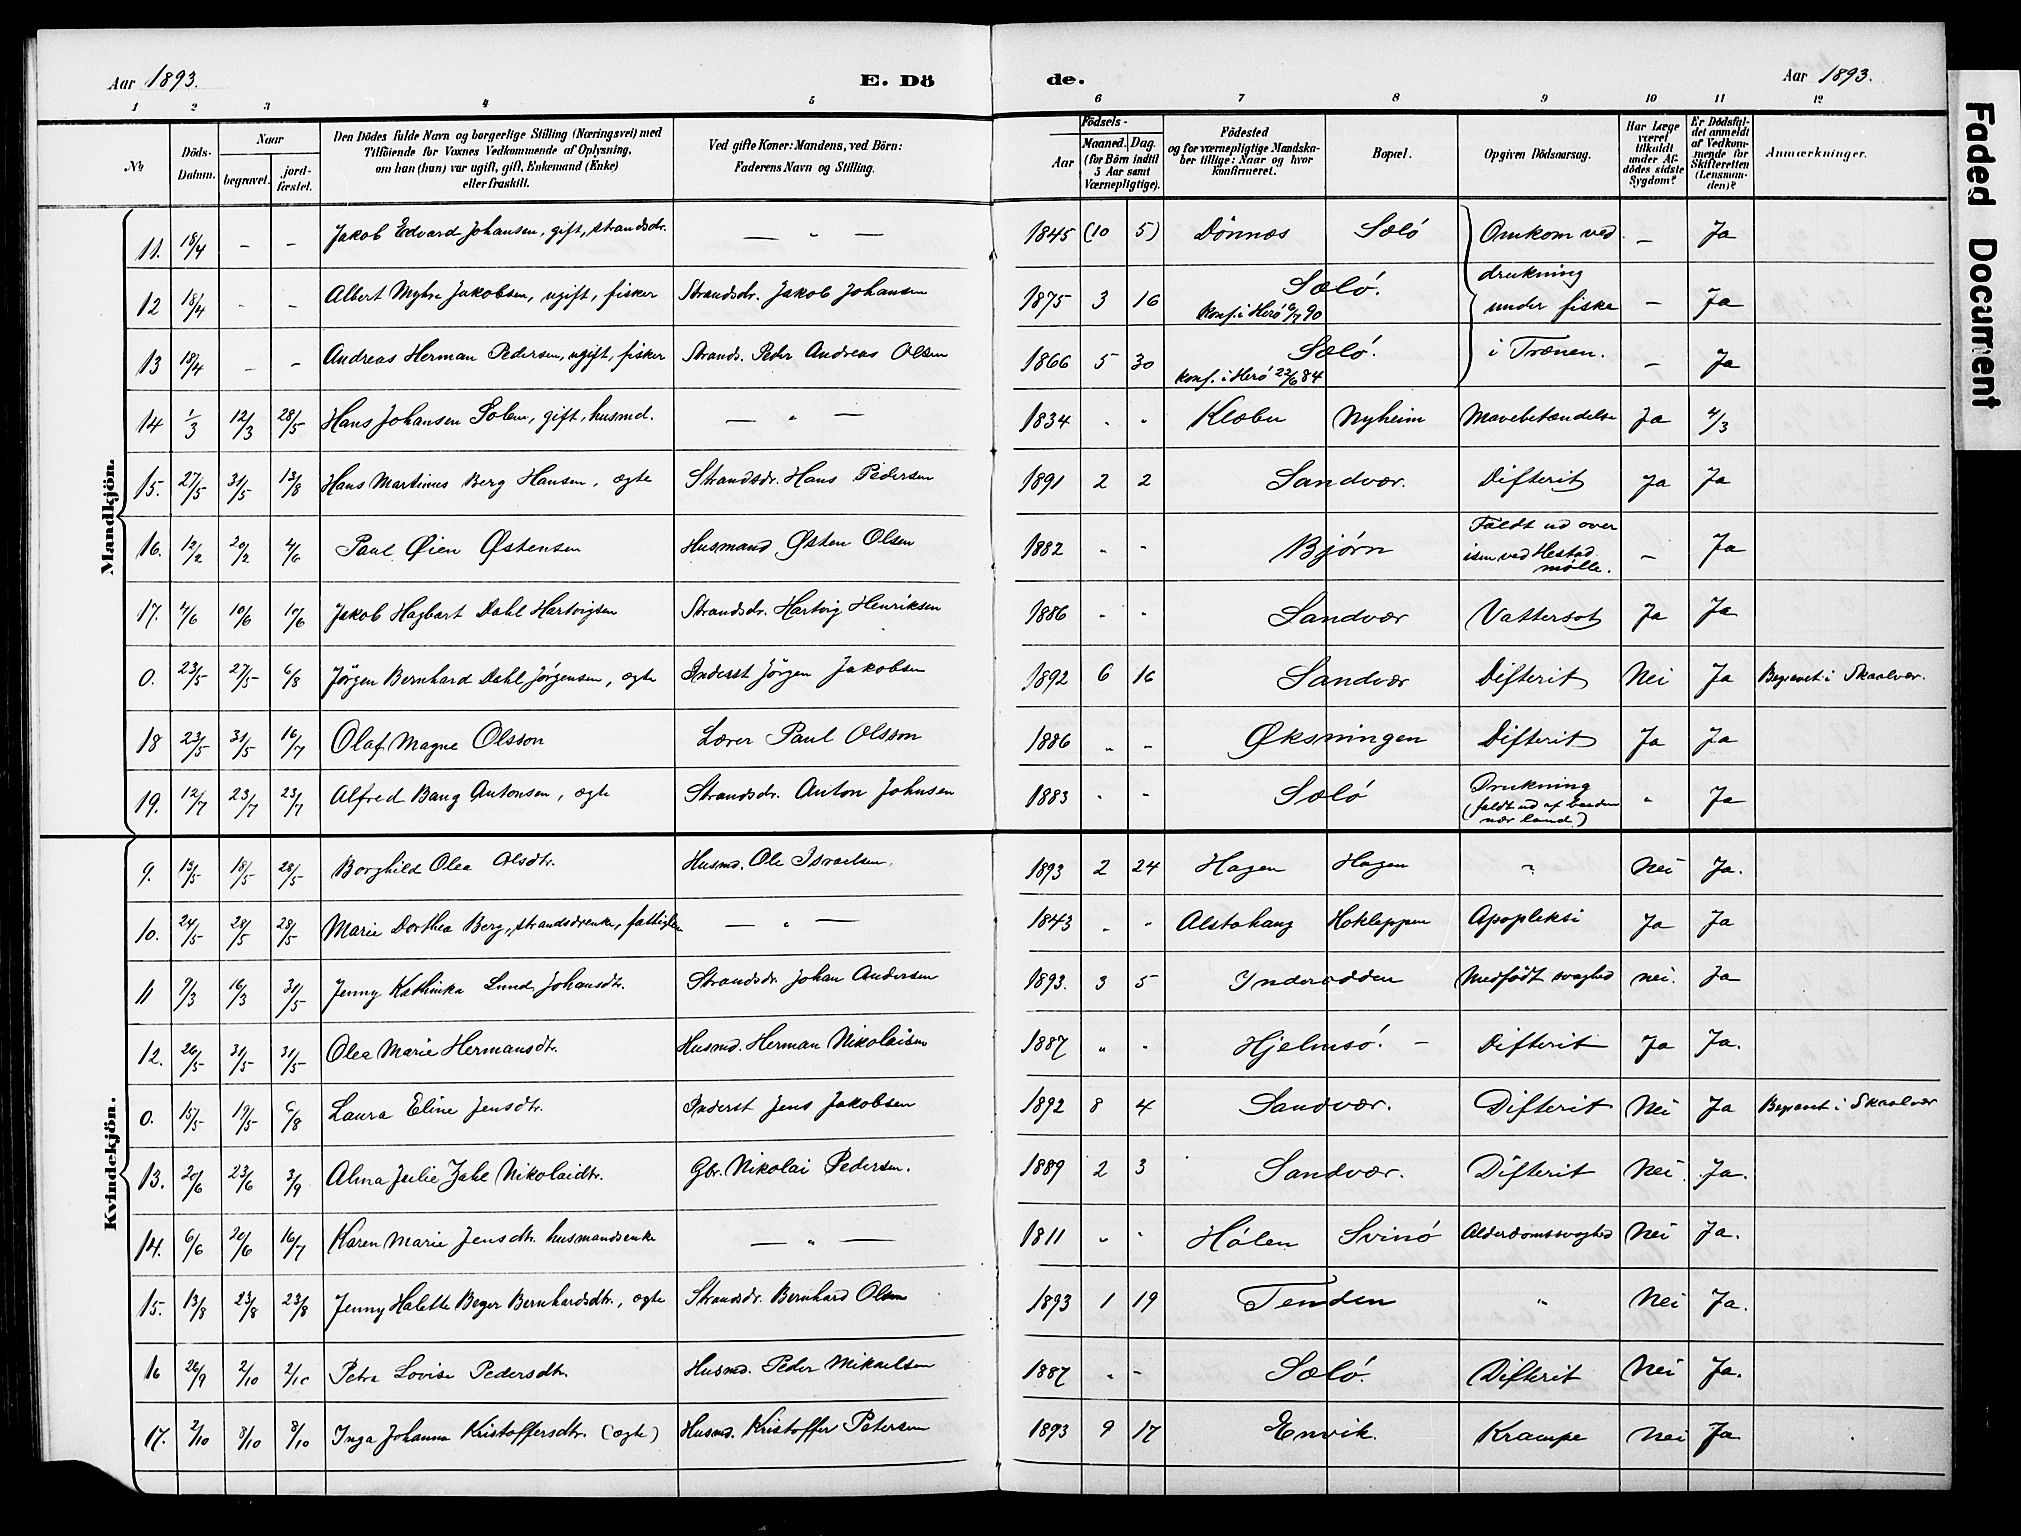 Aar 1893.
E. Dö
de.
Aar 1893.
1 2 3 4 5 6 7 8 9 10 11 12
No
Döds-
Datum.
Naar
begravet.
jord-
fæstet.
Den Dödes fulde Navn og borgerlige Stilling (Næringsvei) med
Tilföiende for Voxnes Vedkommende af Oplysning,
om han (hun) var ugift, gift, Enkemand (Enke)
eller fraskilt.
Ved gifte Koner: Mandens, ved Börn:
Faderens Navn og Stilling.
Födsels-
Aar
Maaned. Dag.
(for Börn indtil
5 Aar samt
Værnepligtige).
Födested
og for værnepligtige Mandska-
ber tillige: Naar og hvor
konfirmeret.
Bopæl.
Opgiven Dödsaarsag.
Har Læge
været
tilkaldt
under Af-
dödes sidste
Sygdom?
Er Dödsfal-
det anmeldt
af Vedkom-
mende for
Skifteretten
(Lensman-
den)?
Anmærkninger.
Faded Document
Mandkjön.
11. 18/4 – – Jakob Edvard Johansen, gift, strandsdr. — " — 1845 (10 5) Dönnæs Sælö Omkom ved – Ja
12 18/4 - - Albert Myhre Jakobsen, ugift, fisker Strandsdr. Jakob Johansen 1875 3 16 Sælö. Konf. i Herö 6/7 90 drukning under fiske – Ja
13 18/4 - - Andreas Herman Pedersen, ugift, fisker Strands. Peder Andreas Olsen 1866 5 30 Sælö. Konf. i Herö 22/6 84 i Trænen. – Ja
14 1/3 12/3 28/5 Hans Johansen Solem, gift, husmd. — " — 1834 " " Klæbu Nyheim Mavebetændelse Ja 4/3
15. 27/5 31/5 13/8 Hans Martinus Berg Hansen, ægte Strandsdr. Hans Pedersen 1891 2 2 Sandvær. Difterit Ja Ja
16. 12/2 20/2 4/6 Paul Øien Østensen Husmand Østen Olsen 1882 " " Bjørn Faldt ud over isen ved Hestad mølle. – Ja
17. 4/6 10/6 10/6 Jakob Hagbart Dahl Hartvigsen Strandsdr. Hartvig Henriksen 1886 " " Sandvær Vattersot Ja Ja
0. 23/5 27/5 6/8 Jörgen Bernhard Dahl Jörgensen, ægte Inderst Jörgen Jakobsen 1892 6 16 Sandvær Difterit Nei Ja Begravet i Skaalvær.
18 23/5 31/5 16/7 Olaf Magne Olsson Lærer Paul Olsson 1886 " " Øksningen Difterit Ja Ja
19. 12/7 23/7 23/7 Alfred Bang Antonsen, ægte Strandsdr. Anton Johnsen 1883 " " Sælö Drukning (faldt ud af baaden nær land) " Ja
Kvindekjön.
9. 13/5 18/5 28/5 Borghild Olea Olsdtr. Husmd. Ole Israelsen. 1893 2 24 Hagen Hagen " Nei Ja.
10. 24/5 28/5 28/5 Marie Dorthea Berg, strandsdrenke, fattiglem — " — 1843 " " Alstahaug Hokleppen Apopleksi Ja Ja
11 9/3 16/3 31/5 Jenny Kathinka Lund Johansdtr. Strandsdr. Johan Andersen 1893. 3 5 Inderodden Medfödt svaghed nei. Ja
12. 26/5 31/5 31/5 Olea Marie Hermansdtr. Husmd. Herman Nikolaisen 1887 " " Hjelmsö. – Difterit Ja Ja.
0. 15/5 19/5 6/8 Laura Eline Jensdtr. Inderst Jens Jakobsen 1892 8 4 Sandvær. Difterit Nei Ja Begravet i Skaalvær
13. 20/6 23/6 3/9 Alma Julie Zahl Nikolaidtr. Gbr. Nikolai Pedersen. 1889 2 3 Sandvær. Difterit Nei Ja.
14. 6/6 20/6 16/7 Karen Marie Jensdtr. husmandsenke — " — 1811 " " Hölen Svinö Alderdomssvaghed Nei Ja.
15. 13/8 23/8 23/8 Jenny Halette Beyer Bernhardsdtr., ægte Strandsdr. Bernhard Olsen 1893 1 19 Tenden " Nei Ja.
16 26/9 2/10 2/10 Petra Lovise Pedersdtr. Husmd. Peder Mikaelsen 1887 " - Sælö. Difterit Nei Ja.
17. 2/10 8/10 8/10 Inga Johanna Kristoffersdtr. (ægte) Husmd. Kristoffer Petersen 1893 9 17 Envik. Krampe Nei Ja